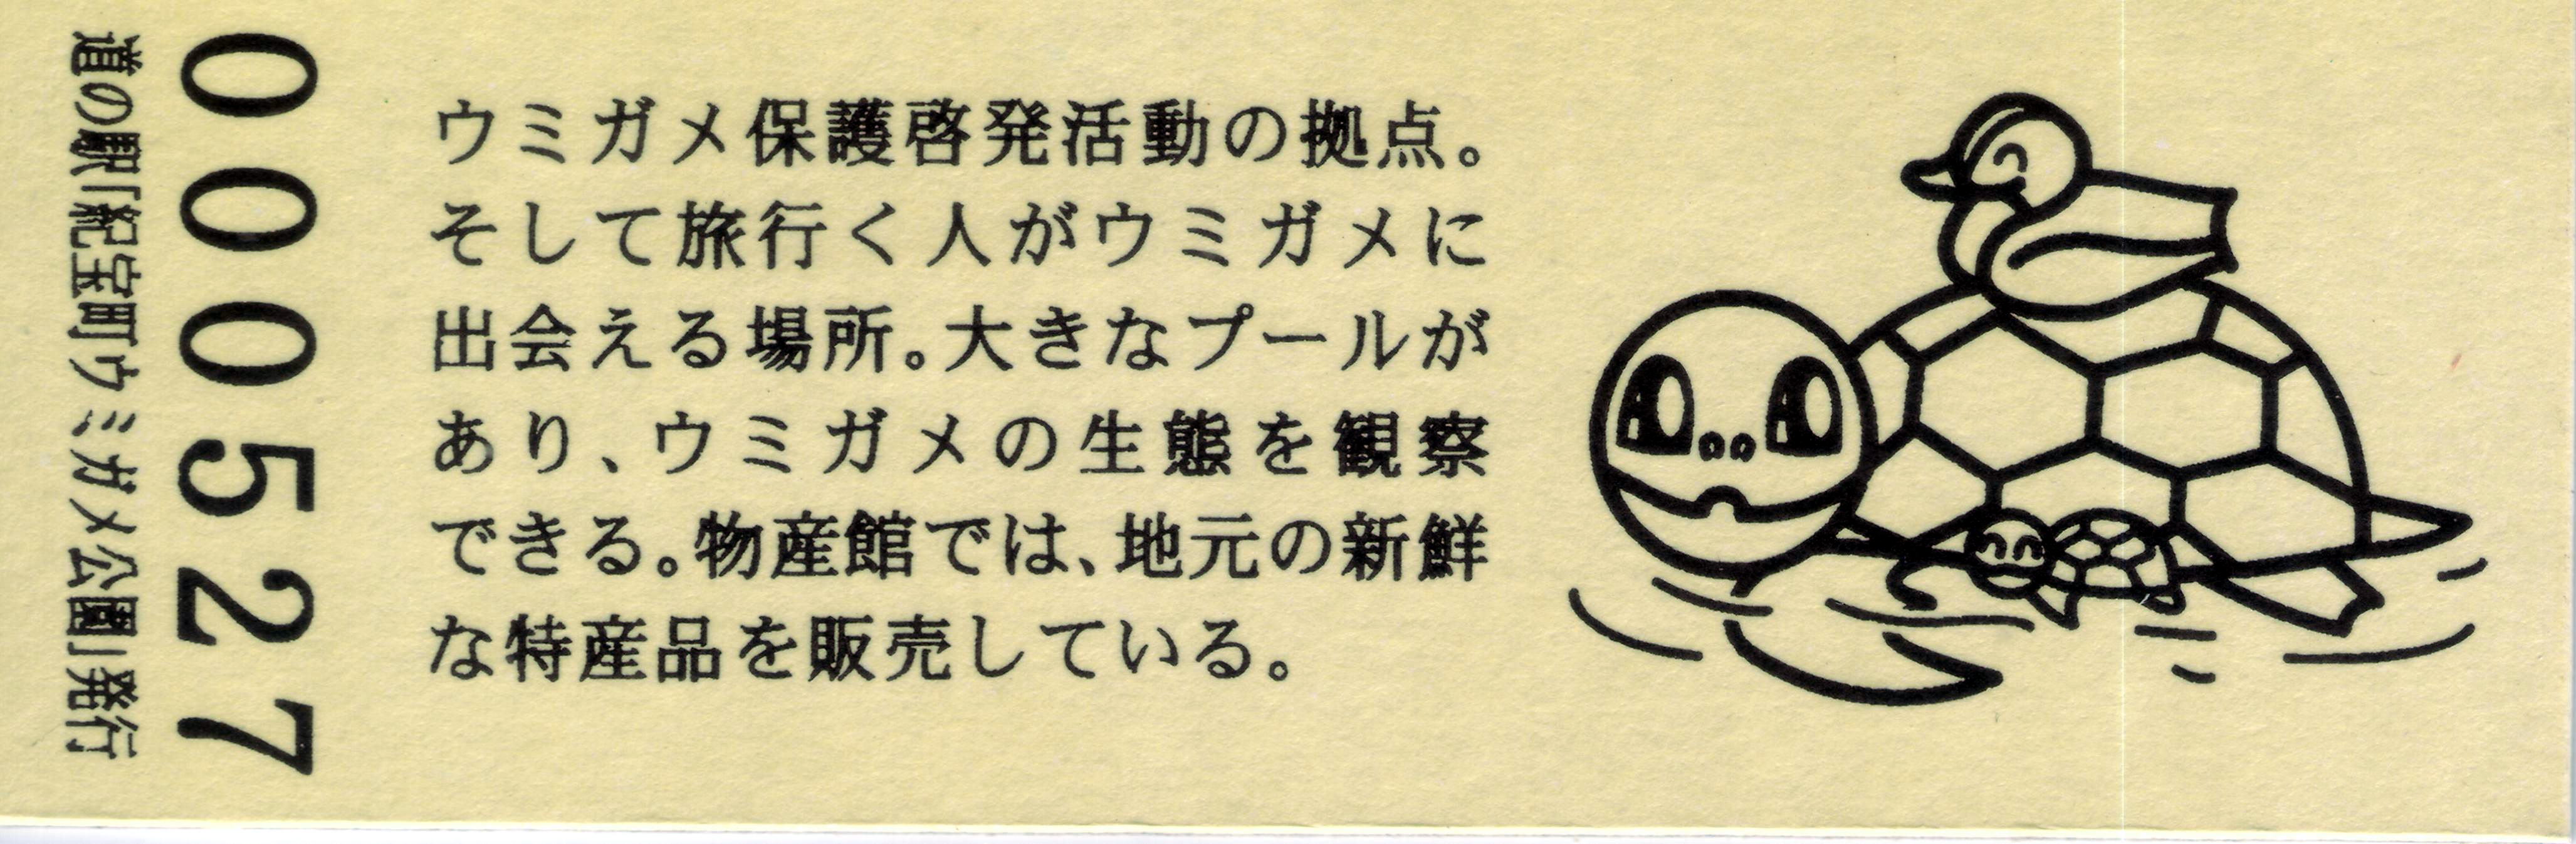 道の駅「紀宝町ウミガメ公園」発行
000527
ウミガメ保護啓発活動の拠点。
そして旅行く人がウミガメに
出会える場所。大きなプールが
あり、ウミガメの生態を観察
できる。物産館では、地元の新鮮
な特産品を販売している。